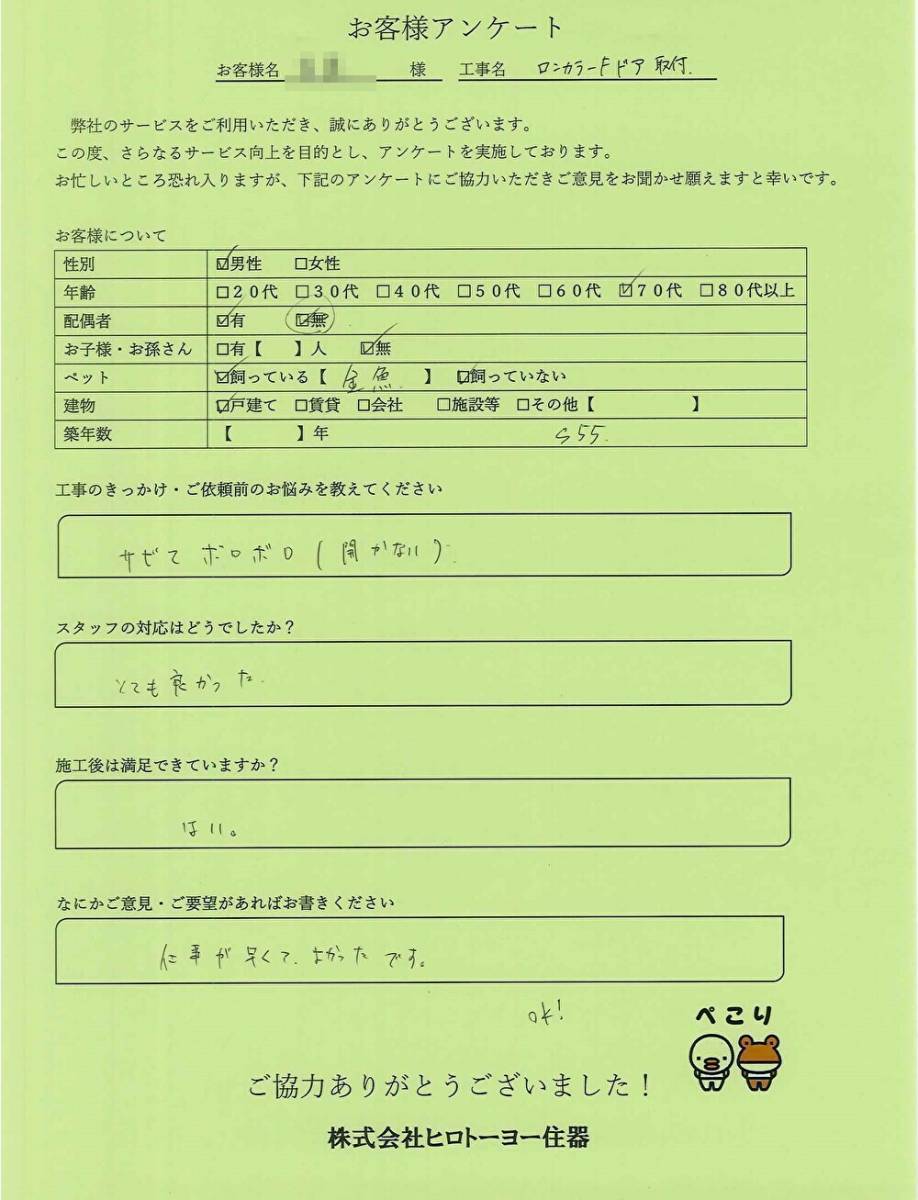 お客様アンケート
お客様名 様 工事名 ロンカラーFドア 取付.
弊社のサービスをご利用いただき、誠にありがとうございます。
この度、さらなるサービス向上を目的とし、アンケートを実施しております。
お忙しいところ恐れ入りますが、下記のアンケートにご協力いただきご意見をお聞かせ願えますと幸いです。
お客様について
性別 ☑男性 □女性
年齢 □20代 □30代 □40代 □50代 □60代 ☑70代 □80代以上
配偶者 ☑有 ☑無
お子様・お孫さん □有【 】人 ☑無
ペット ☑飼っている【 金魚. 】 ☑飼っていない
建物 ☑戸建て □賃貸 □会社 □施設等 □その他【 】
築年数 【 】年 S55.
工事のきっかけ・ご依頼前のお悩みを教えてください
サビて ボロボロ (開かない).
スタッフの対応はどうでしたか？
とても良かった.
施工後は満足できていますか？
はい。
なにかご意見・ご要望があればお書きください
仕事が早くて、よかったです。
ok!
ぺこり
ご協力ありがとうございました！
株式会社ヒロトーヨー住器